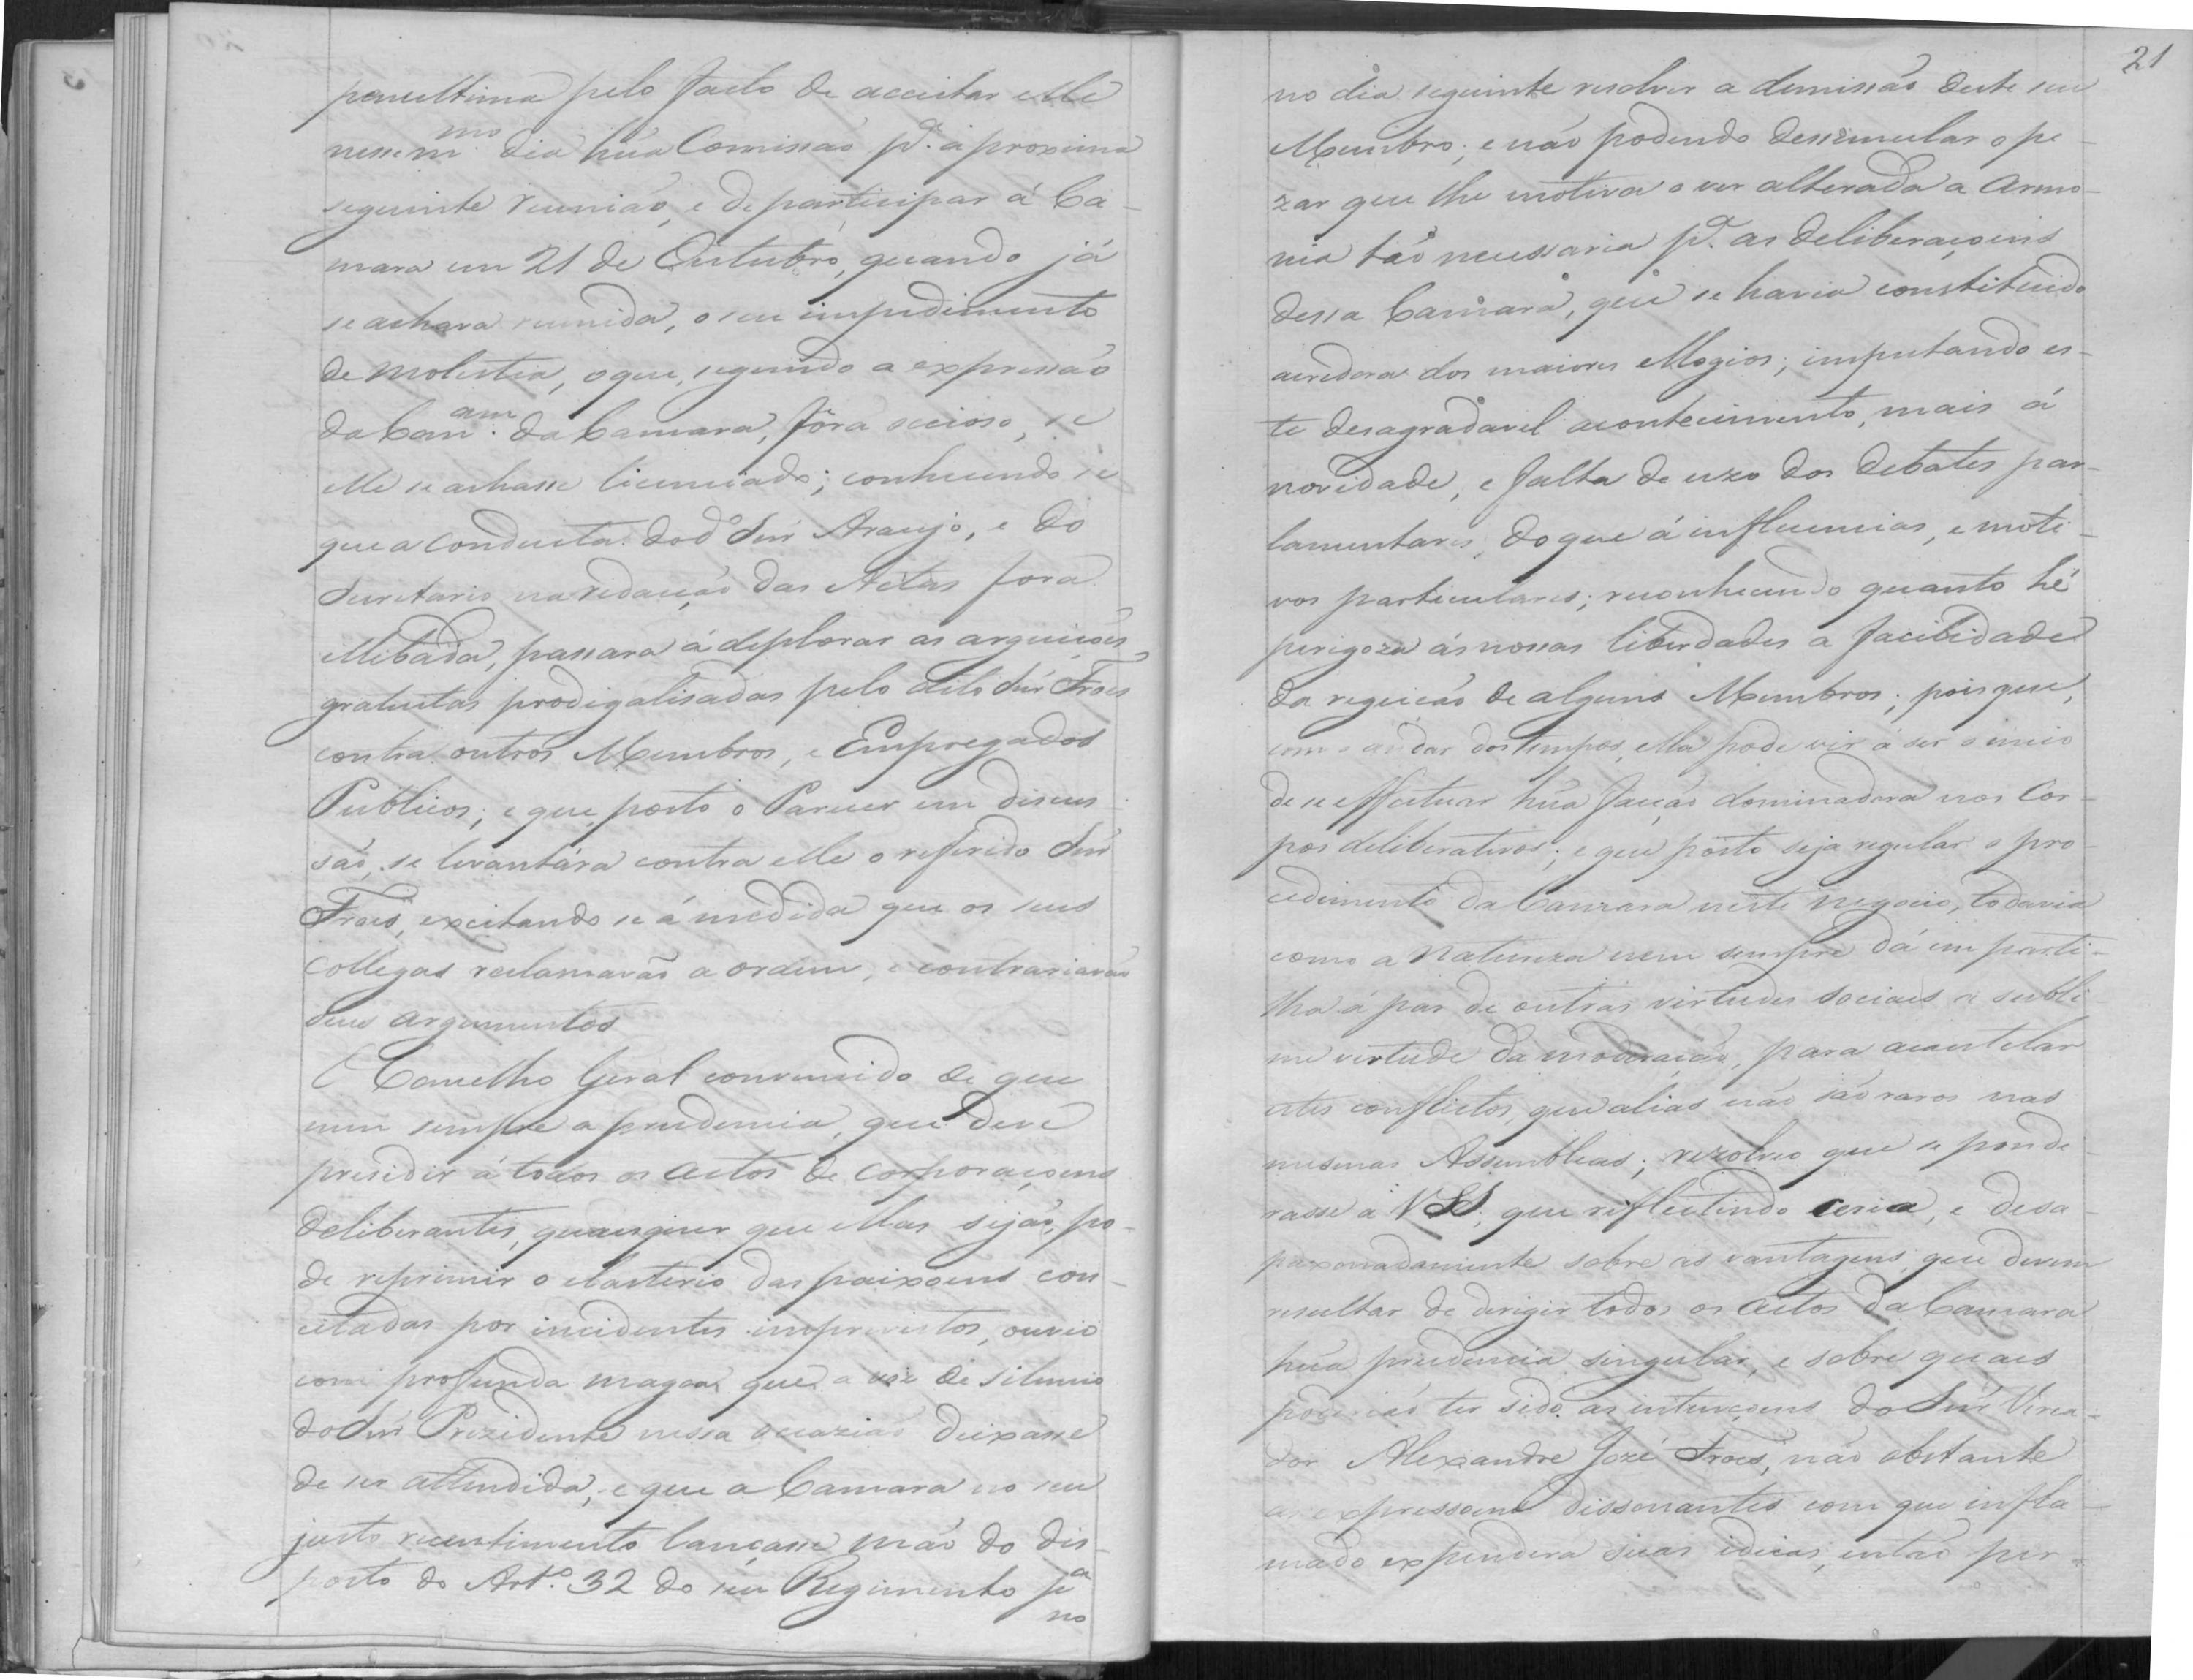 penultima pelo facto de acceitar elle
nesse m.mo dia hũa Comissão p.ª a proxima
seguinte reunião, e de participar á Ca-
mara em 21 de Outubro, quando já
se achava reunida, o seu impedimento
de molestia, o que, segundo a expressão
da Cam.am da Camara, fôra ocioso, se
elle se achasse licenciado; conhecendo se
que a conducta do d.o Snr Araujo, e do
Secretario na redacção das Actas fora
illibada, passara á deplorar as arguições
gratuitas prodigalisadas pelo dito Snr Froes
contra outros Membros, e Empregados
Publicos; e que posto o Parecer em discus-
são, se levantára contra elle o referido Snr
Froes, excitando se á medida que os seus
Collegas reclamavão a ordem, e contrariavão
seus argumentos
O Conselho Geral convencido de que
nem sempre a prudencia, que deve
presidir á todos os actos de corporaçoens
deliberantes, quaesquer que ellas sejão, po-
de reprimir o elasterio das paixoens con-
citadas por incidentes imprevistos, ouvio
com profunda magoa que a voz de silencio
do Snr Prezidente nessa occazião deixasse
de ser attendida, e que a Camara no seu
justo recentimento lançasse mão do dis-
posto do Art.º 32 do seu Regimento p.ª
no
21
no dia seguinte resolver a demissão deste seu
Membro; e não podendo dessimular o pe-
zar que lhe motiva o ver alterada a Armo-
nia tão necessaria p.ª as deliberaçoens
dessa Camara, que se havia constituido
acredora dos maiores ellogios; imputando es-
te desagradavel acontecimento, mais á
novidade, e falta de uzo dos debates par-
lamentares, do que á influencias, e moti-
vos particulares; reconhecendo quanto hé
perigoza ás nossas liberdades a facilidade
da regeição de alguns Membros; pois que,
com o andar dos tempos, ella pode vir á ser o meio
de se effectuar hũa facção dominadora nos Cor-
pos deliberativos; e que posto seja regular o pro-
cedimento da Camara neste negocio, todavia
como a Natureza nem sempre dá em parti-
lha á par de outras virtudes sociaes a subli-
me virtude da moderação, para acautelar
estes conflictos, que alias não são raros nas
mesmas Assembleas; rezolveo que se ponde-
rasse á VSS, que reflectindo ceria, e desa-
paxonadamente sobre as vantagens que devem
resultar de dirigir todos os actos da Camara
hũa prudencia singular, e sobre quaes
poderião ter sido as intençoens do Snr Verea-
dor Alexandre Jozé Froes, não obstante
as expressoens dissonantes com que infla-
mado expendera suas ideias, então per-